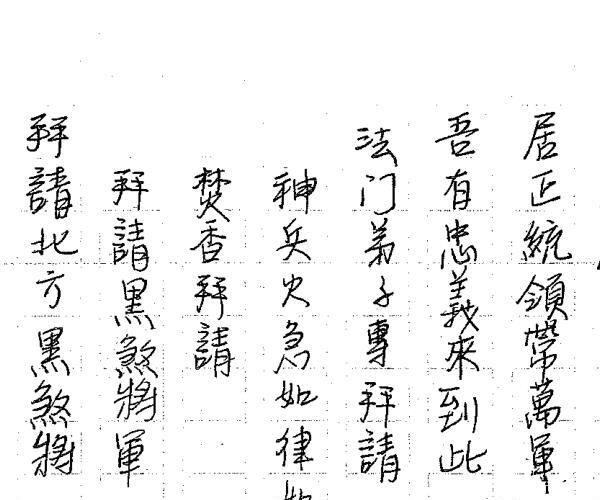 居正統領帶萬軍
吾有忠義來到此
法门弟子專拜請
神兵火急如律
焚香拜請
拜請黑煞將軍
拜請北方黑煞將